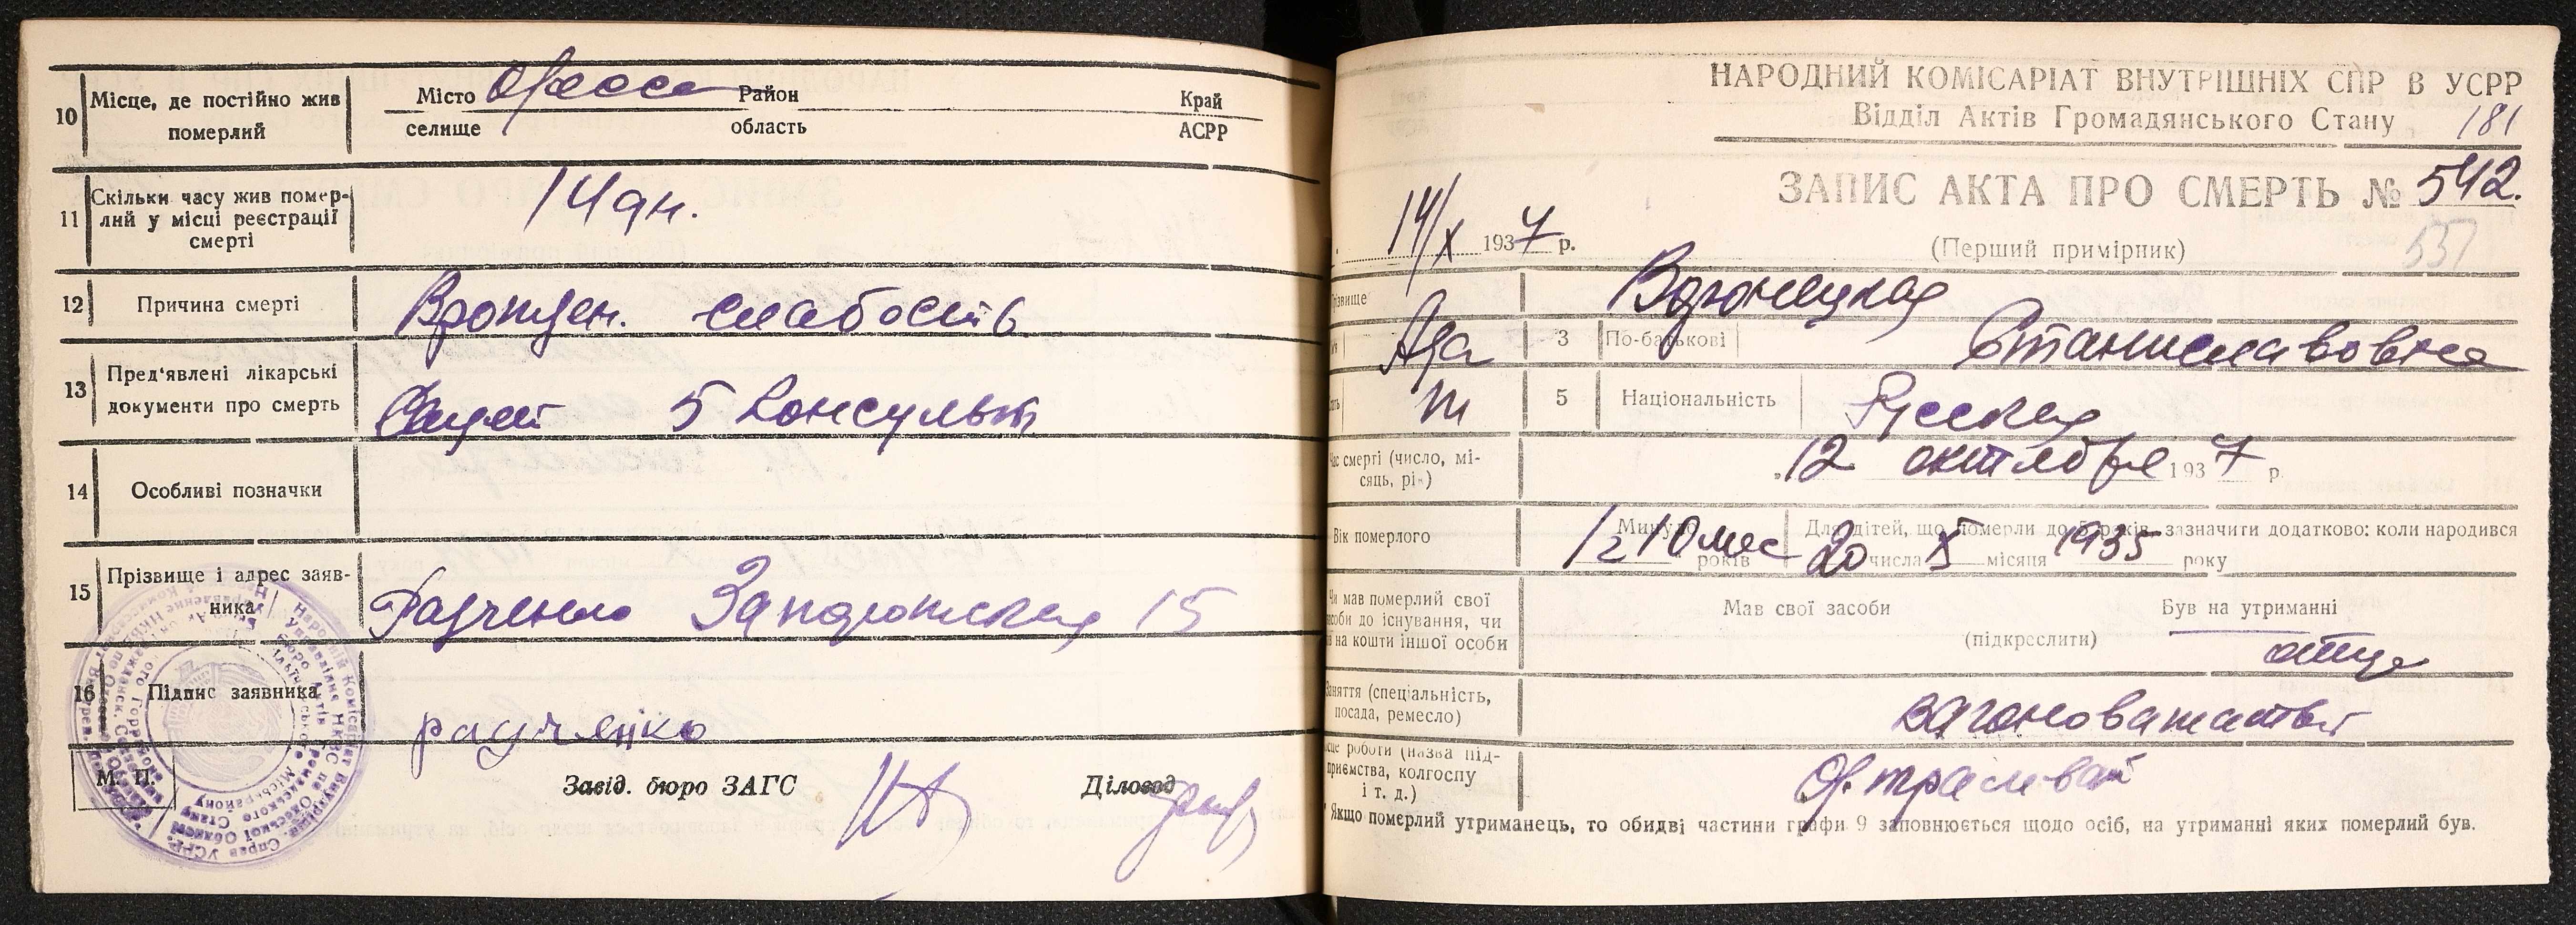 10 Місце, де постійно жив померлий
Місто Одесса Район Край
селище область АСРР
11 Скільки часу жив помер-
лий у місці реєстрації
смерті
14 дн.
12 Причина смерті Врожден. слабость
13 Пред'явлені лікарські
документи про смерть
5 консульт
14 Особливі позначки
15 Прізвище і адрес заяв-
ника
Радченко 15
16 Підпис заявника
радченко
М. П.
Завід. бюро ЗАГС Діловод
НАРОДНИЙ КОМІСАРІАТ ВНУТРІШНІХ СПР В УСРР
Відділ Актів Громадянського Стану 181
ЗАПИС АКТА ПРО СМЕРТЬ № 542.
14/X 1937 р.
(Перший примірник)
557
різвище
Ада 3 По-батькові Станиславовна
5 Національність Русская
Час смерті (число, мі-
сяць, рік)
12 октября 1937 р.
Вік померлого
Минуло років 1 г 10 мес
Для дітей, що померли до 5 років, зазначити додатково: коли народився
20 числа X місяця 1935 року
Чи мав померлий свої
засоби до існування, чи
на кошти іншої особи
Мав свої засоби Був на утриманні
(підкреслити)
отца
Заняття (спеціальність,
посада, ремесло)
вагоновожатый
місце роботи (назва під-
приємства, колгоспу
і т. д.)
Од. трамвай
* Якщо померлий утриманець, то обидві частини графи 9 заповнюється щодо осіб, на утриманні яких померлий був.